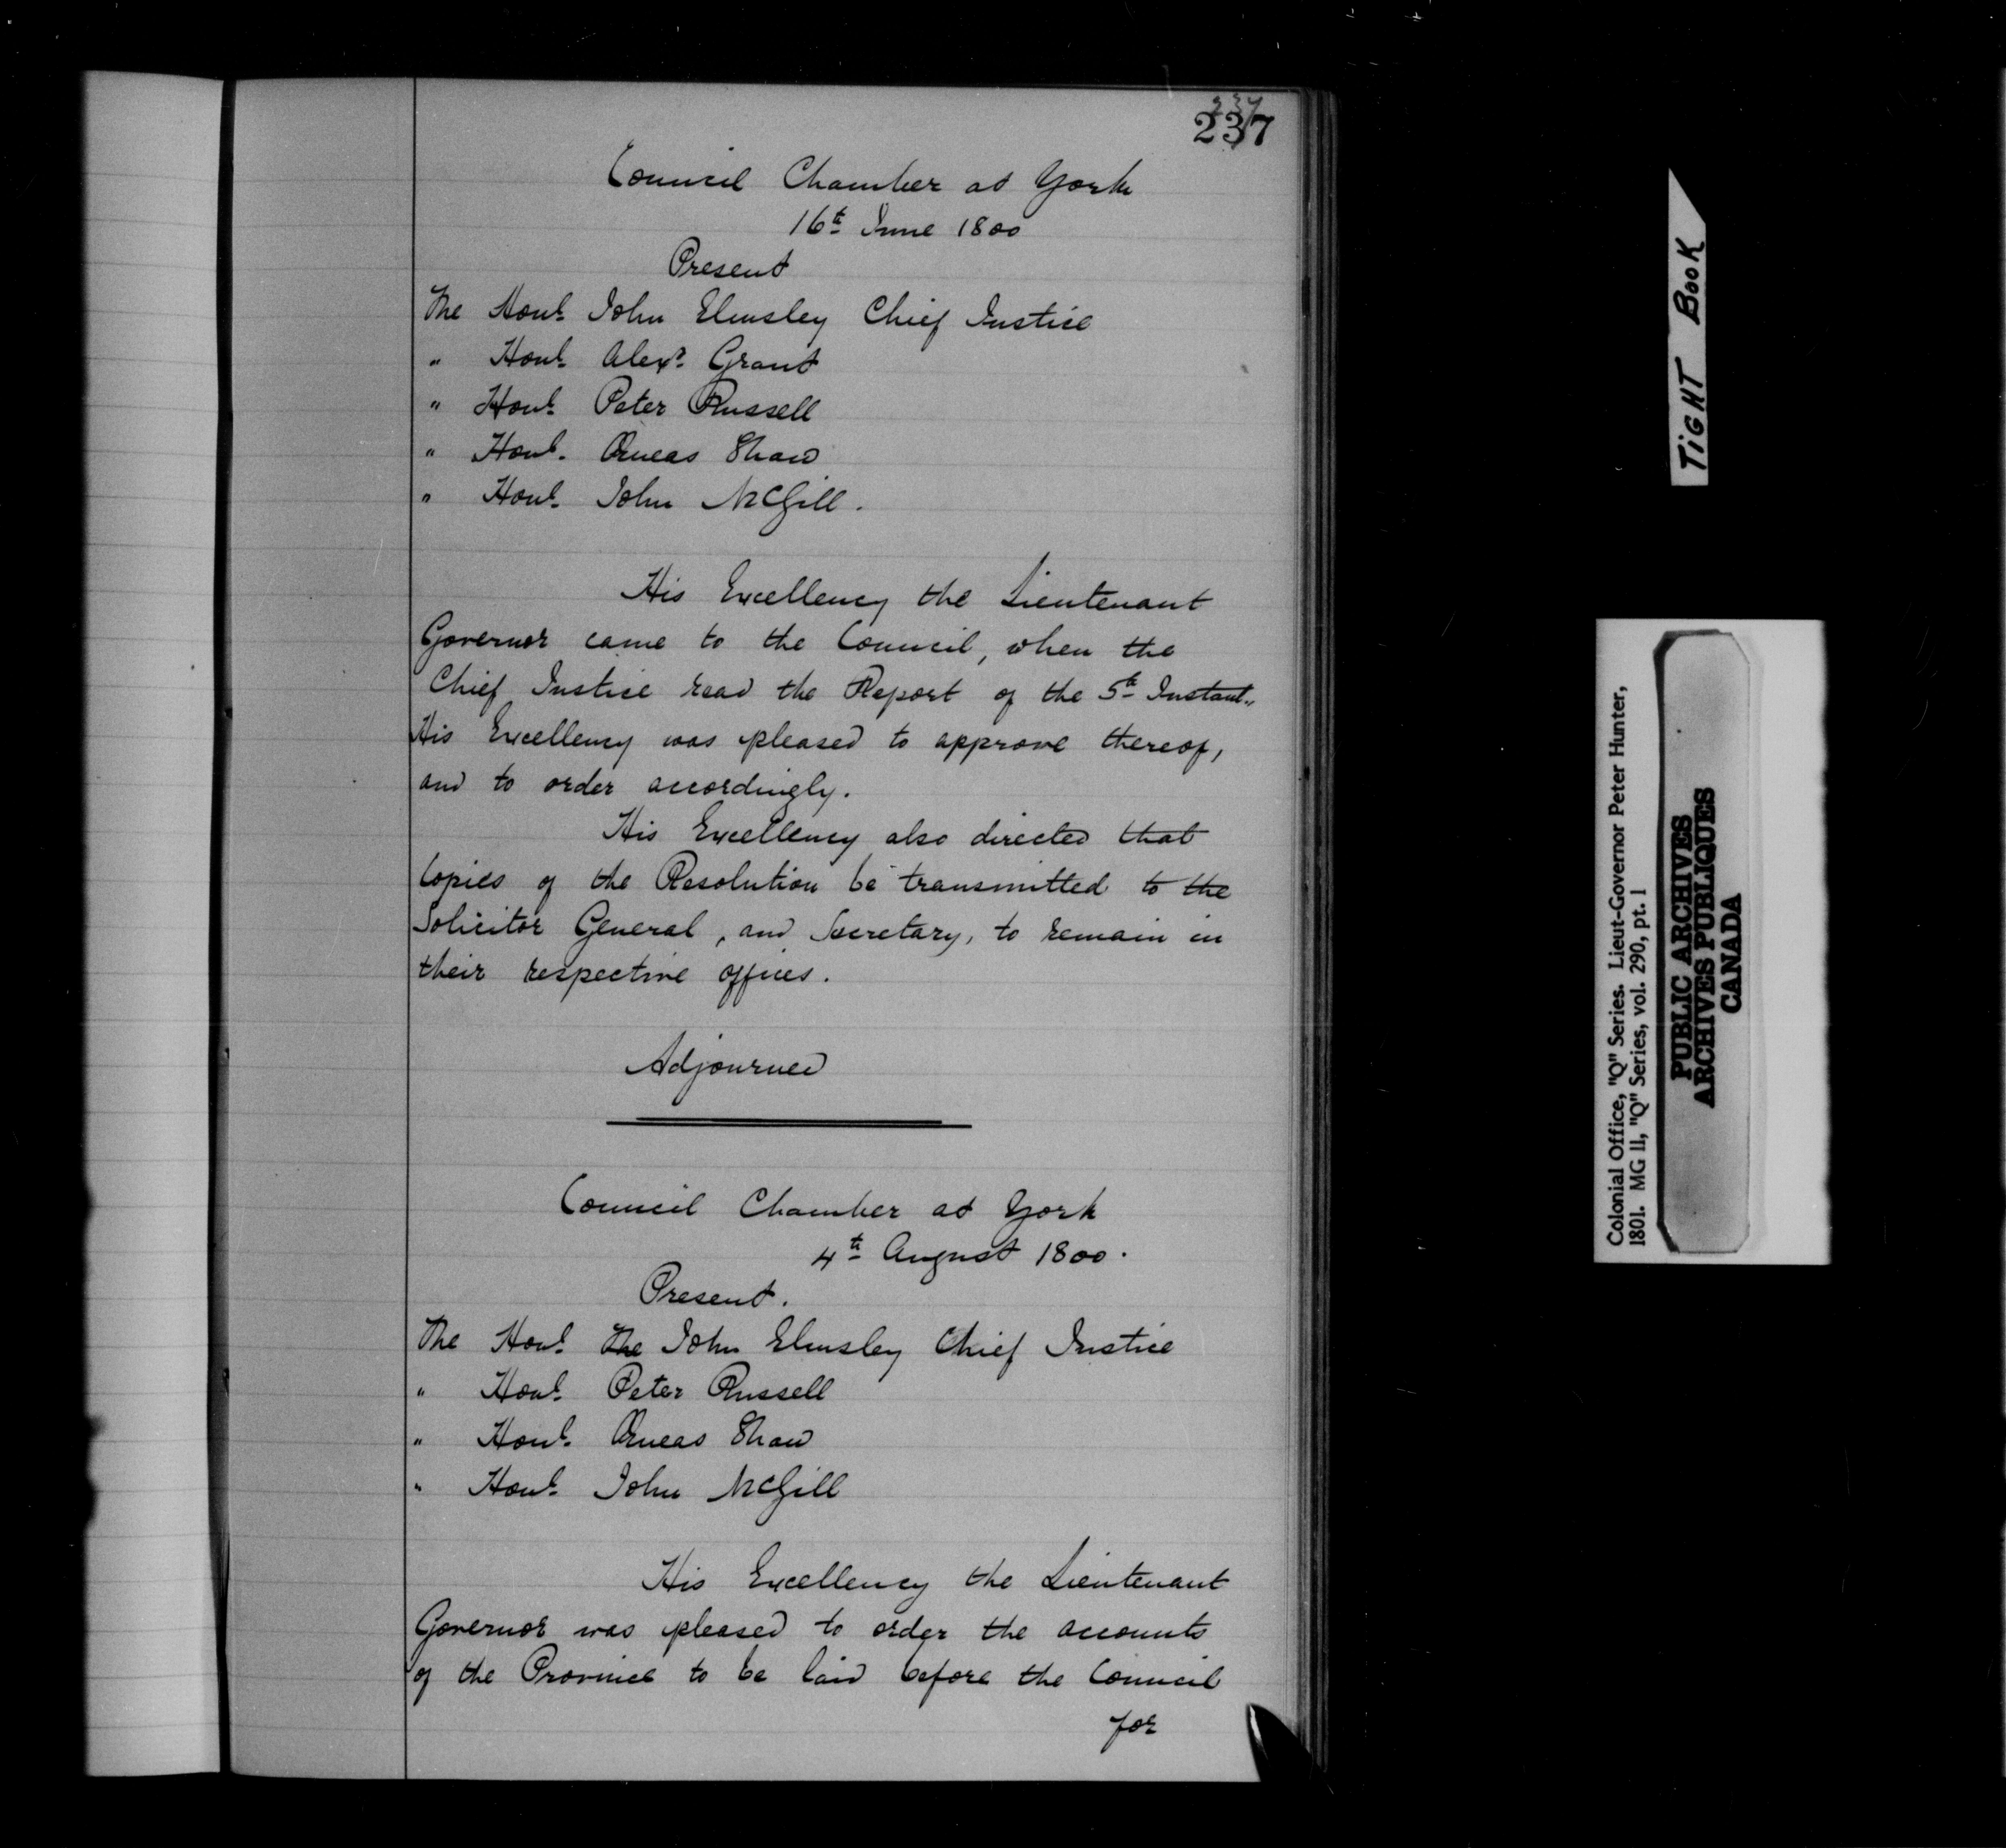 237
237
Council Chamber at York
16th June 1800
Present
The Honl. John Elmsley Chief Justice
" Honl. Alexr. Grant
" Honl. Peter Russell
" Honl. Æneas Shaw
" Honl. John McGill.
His Excellency the Lieutenant
Governor came to the Council, when the
Chief Justice read the Report of the 5th Instant.,
His Excellency was pleased to approve thereof,
and to order accordingly.
His Excellency also directed that
Copies of the Resolution be transmitted to the
Solicitor General, and Secretary, to remain in
their respective offices.
Adjourned
Council Chamber at York
4th August 1800.
Present.
The Honl. The John Elmsley Chief Justice
" Honl. Peter Russell
" Honl. Æneas Shaw
" Honl. John McGill
His Excellency the Lieutenant
Governor was pleased to order the accounts
of the Province to be laid before the Council
for
TIGHT BOOK
Colonial Office, "Q" Series. Lieut-Governor Peter Hunter,
1801. MG 11, "Q" Series, vol. 290, pt. 1
PUBLIC ARCHIVES
ARCHIVES PUBLIQUES
CANADA